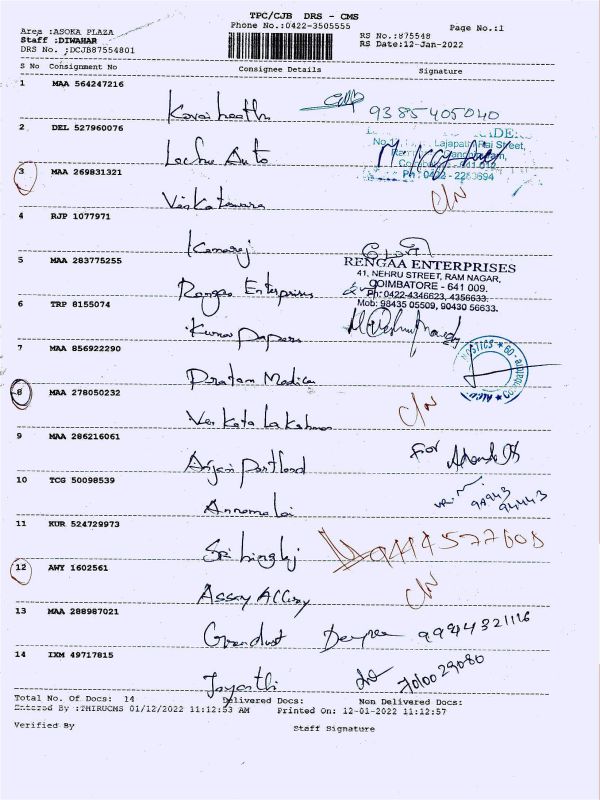 TPC/CJB DRS - CMS
Phone No.:0422-3505555
Page No.:1
Area :ASOKA PLAZA
RS No.:875548
Staff :DIWAHAR
RS Date:12-Jan-2022
DRS No. ;DCJB87554801
S No Consignment No Consignee Details Signature
1 MAA 564247216
Kovai heath 9385405040
2 DEL 527960076
Lajapath Rai Street,
Lechu Auto
Ph : 0422 - 2253694
3 MAA 269831321
C/N
4 RJP 1077971
Kanaraj
RENGAA ENTERPRISES
5 MAA 283775255
41, NEHRU STREET, RAM NAGAR,
COIMBATORE - 641 009.
Rangaa Enterprises
Ph: 0422-4346623, 4356633.
Mob: 98435 05509, 90430 56633.
6 TRP 8155074
Kumar Papers
7 MAA 856922290
Pratam Medica
8 MAA 278050232
C/N
Venkata Lakshmi
9 MAA 286216061
For
Anjani Portland
10 TCG 50098539
99943
94443
Annamalai
11 KUR 524729973
9444577608
Sri hinglaj
12 AWY 1602561
C/N
Assay Alloy
13 MAA 288987021
Deepa 9994321116
14 IXM 49717815
Jayanthi
Total No. Of Docs: 14 Delivered Docs: Non Delivered Docs:
Entered By :THIRUCMS 01/12/2022 11:12:53 AM Printed On: 12-01-2022 11:12:57
Verified By Staff Signature